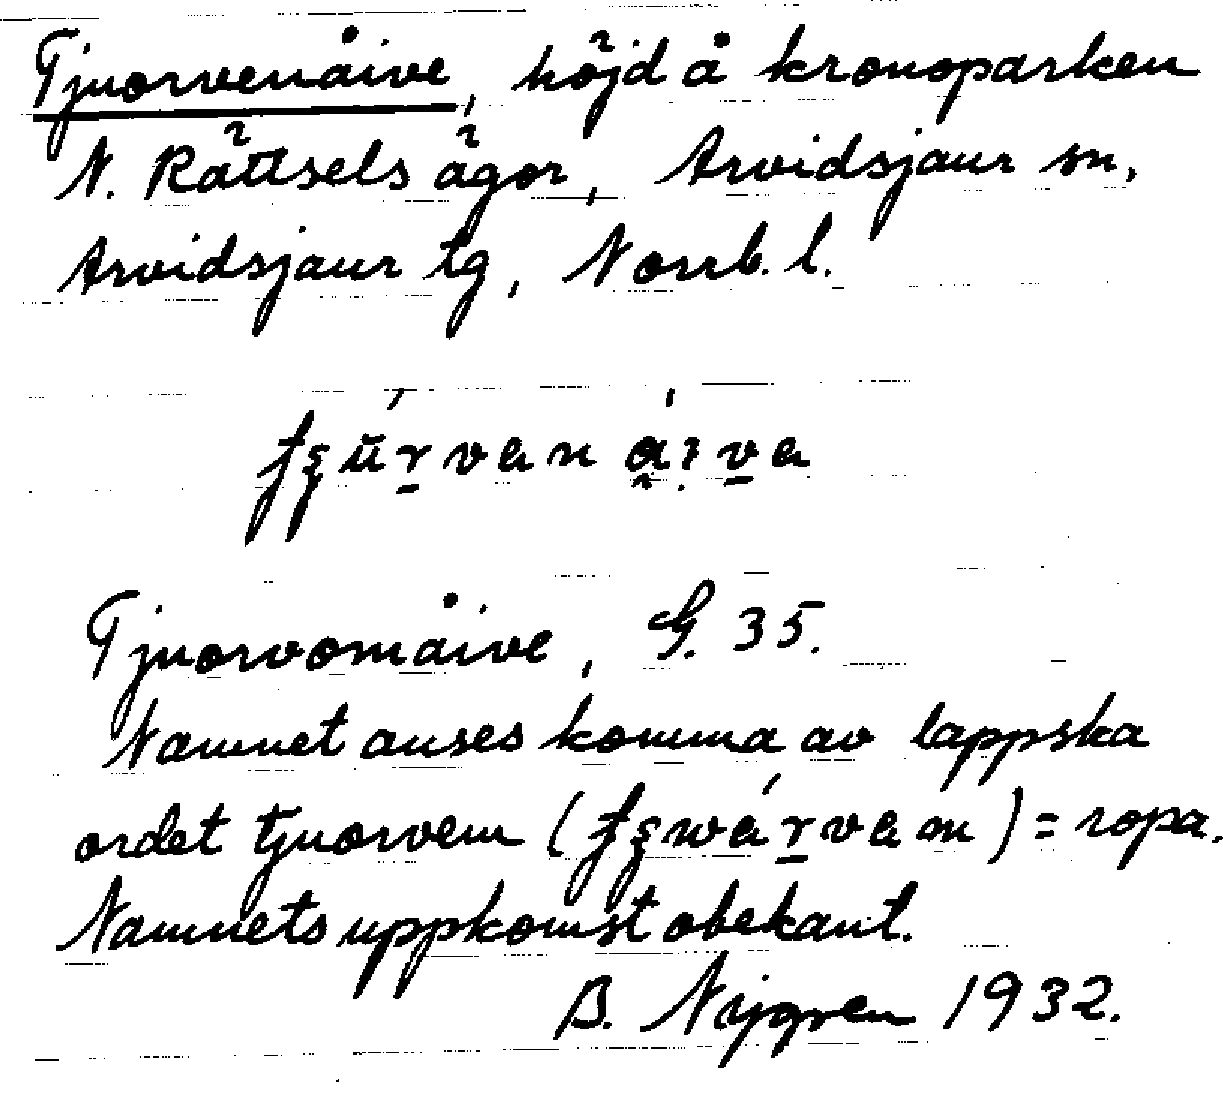 Tjuorvenåive, höjd å kronoparken
N. Rättsels ägor, Arvidsjaur sn,
Arvidsjaur tg, Norrb. l.
Tjuorvomåive, G. 35.
Namnet anses komma av lappska
ordet tjuorvem ( ) = ropa.
Namnets uppkomst obekant.
B. Nygren 1932.